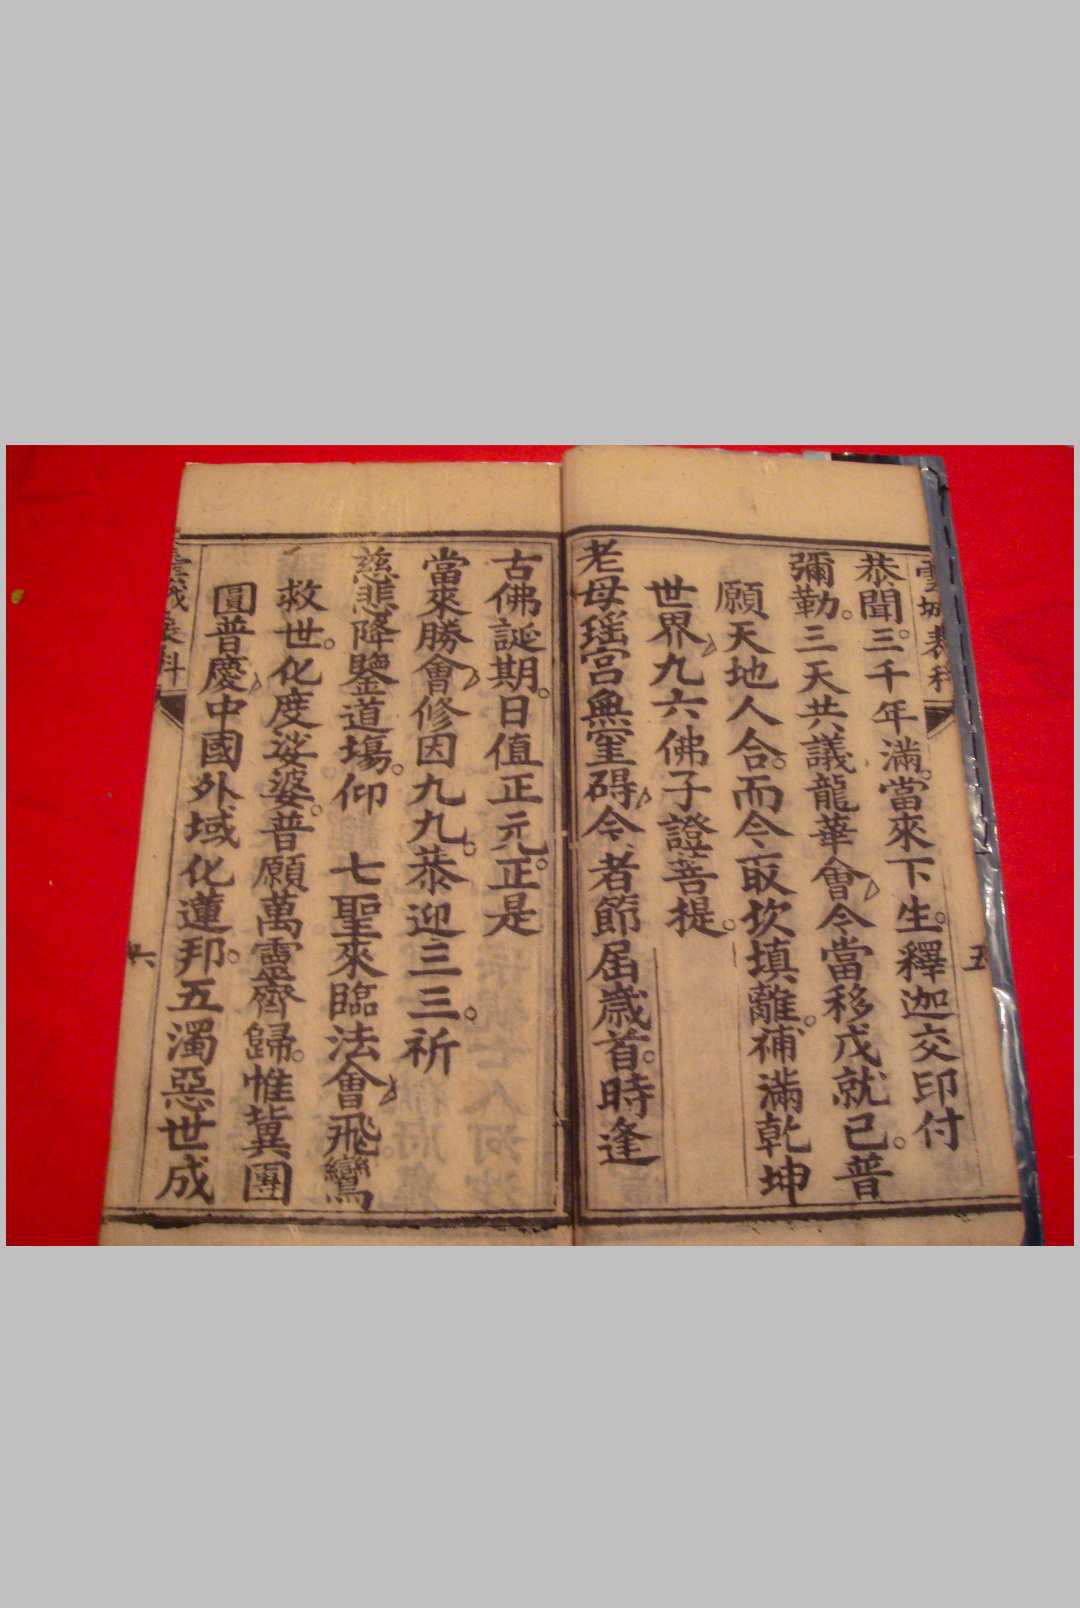 雲城表科
五
恭聞。三千年滿。當來下生。釋迦交印付
彌勒。三天共議龍華會令當移戊就己。普
願天地人合。而今取坎填離。補滿乾坤
世界九六佛子證菩提。
老母瑤宮無罣碍今者節屆歲首。時逢
古佛誕期。日值正元。正是
當來勝會修因九九。恭迎三三。祈
慈悲降鑒道場。仰 七聖來臨法會飛鸞
救世。化度娑婆。普願萬靈齊歸。惟冀團
圓普慶中國外域化蓮邦。五濁惡世成
雲城表科
六